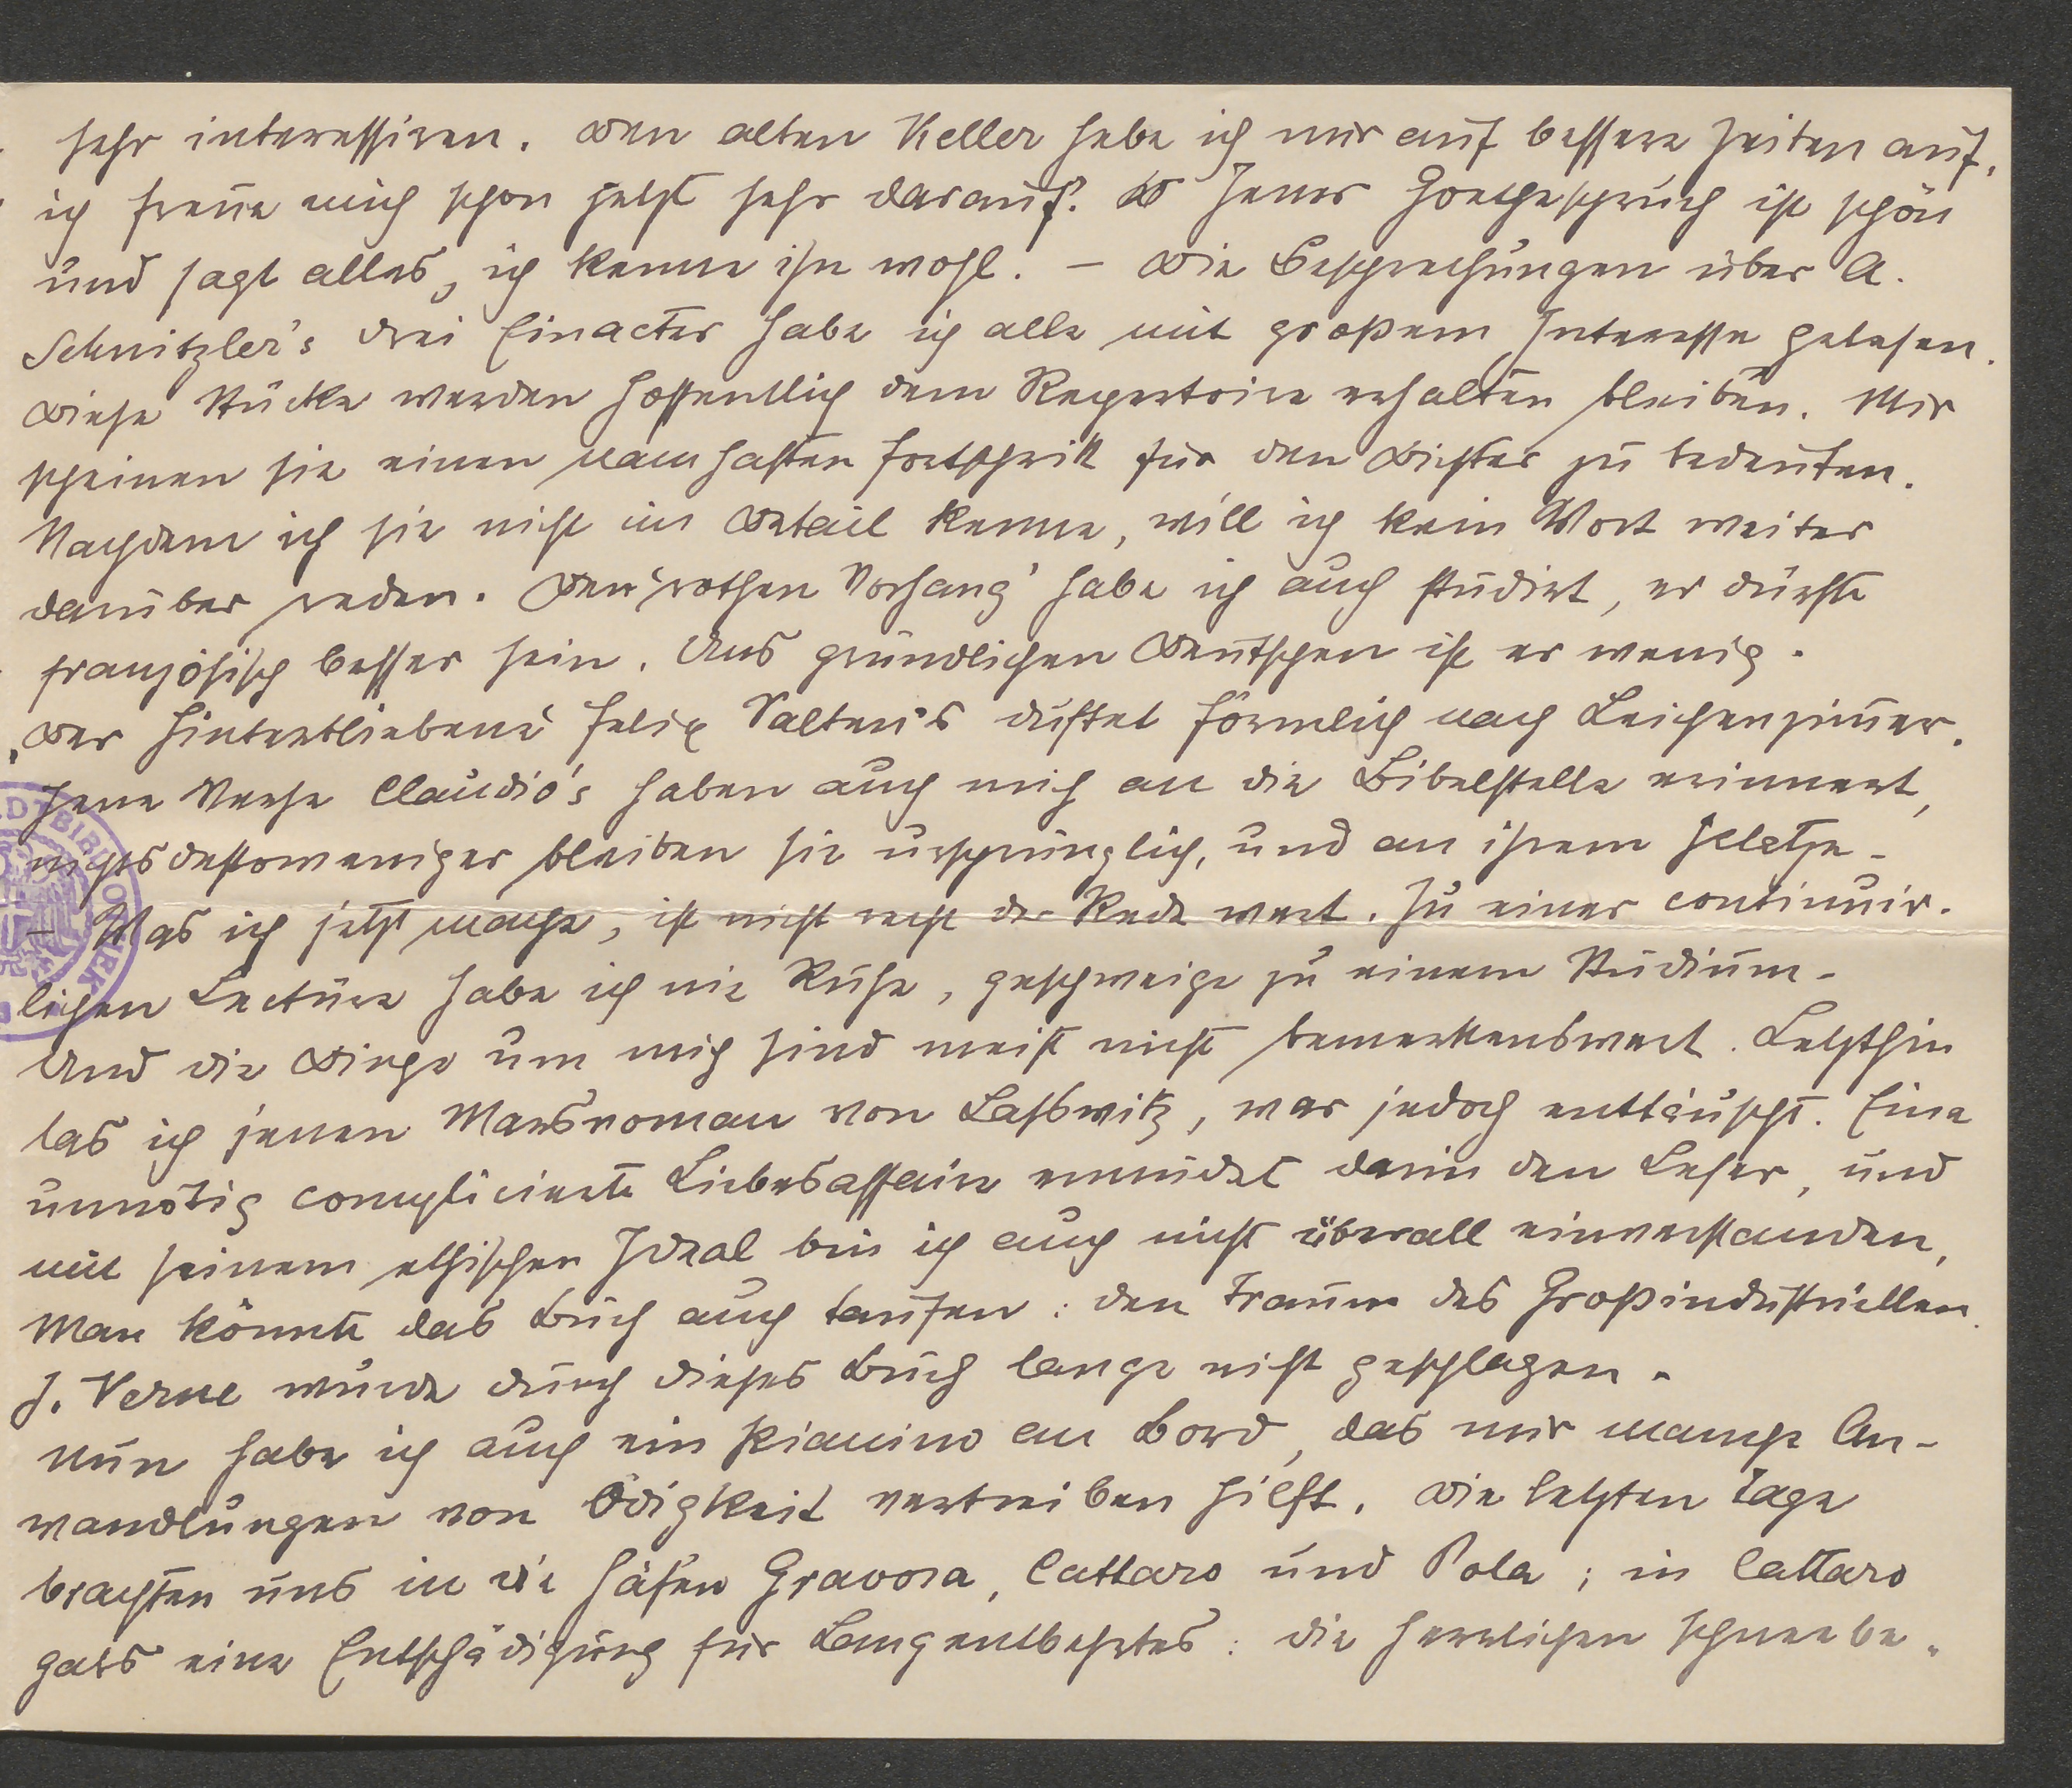 sehr interessiren. Den alten Keller hebe ich mir auf bessere Zeiten auf,
ich freue mich schon jetzt sehr darauf. Jener Goethespruch ist schön
und sagt alles, ich kenne ihn wohl. – Die Besprechungen über A.
Schnitzler's drei Einacter habe ich alle mit großem Interesse gelesen.
Diese Stücke werden hoffentlich dem Repertoire erhalten bleiben. Mir
scheinen sie einen namhaften Fortschritt für den Dichter zu bedeuten.
Nachdem ich sie nicht im Detail kenne, will ich kein Wort weiter
darüber reden. Den 'rothen Vorhang' habe ich auch studirt, er dürfte
französisch besser sein. Uns gründlichen Deutschen ist er wenig.
'Der Hinterbliebene' Felix Salten's duftet förmlich nach Leichenzimmer.
Jene Verse Claudio's haben auch mich an die Bibelstelle erinnert,
nichtsdestoweniger bleiben sie ursprünglich, und an ihrem Platze.
– Was ich jetzt mache, ist nicht recht der Rede wert. Zu einer continuir-
lichen Lectüre habe ich nie Ruhe, geschweige zu einem Studium.
Und die Dinge um mich sind meist nicht bemerkenswert. Letzthin
las ich jenen Marsroman von Laßwitz, war jedoch enttäuscht. Eine
unnötig complicierte Liebesaffaire ermüdet darin den Leser, und
mit seinem ethischen Ideal bin ich auch nicht überall einverstanden,
Man könnte das Buch auch taufen: den Traum des Großindustriellen.
J. Verne wurde durch dieses Buch lange nicht geschlagen.
Nun habe ich auch ein Pianino an Bord, das mir manche An-
wandlungen von Ödigkeit vertreiben hilft. Die letzten Tage
brachten uns in die Häfen Gravosa, Cattaro und Pola; in Cattaro
gabs eine Entschädigung für Langentbehrtes: die herrlichen schneebe-